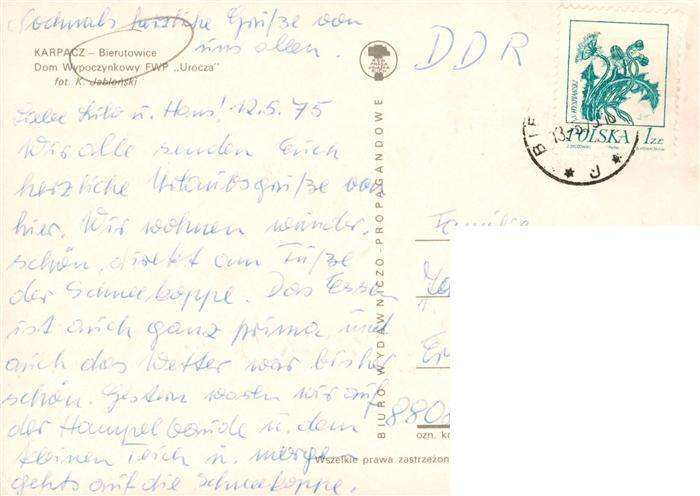 Nochmals herzliche Grüße von
uns allen.
KARPACZ – Bierutowice
Dom Wypoczynkowy FWP „Urocza”
fot. K. Jabłoński
Liebe Hans! 12.5.75
Wir alle senden Euch
herzliche Urlaubsgrüße von
hier. Wir wohnen wunder-
schön, direkt am Fuße
der Schneekoppe. Das Essen
ist auch ganz prima und
auch das Wetter war bisher
schön. Gestern waren wir auf
der Hampelbaude u. dem
kleinen Teich u. morgen
gehts auf die Schneekoppe.
BIURO WYDAWNICZO-PROPAGANDOWE
DDR
POLSKA 1 ZŁ
Familie
880
ozn. ko
Wszelkie prawa zastrzeżon